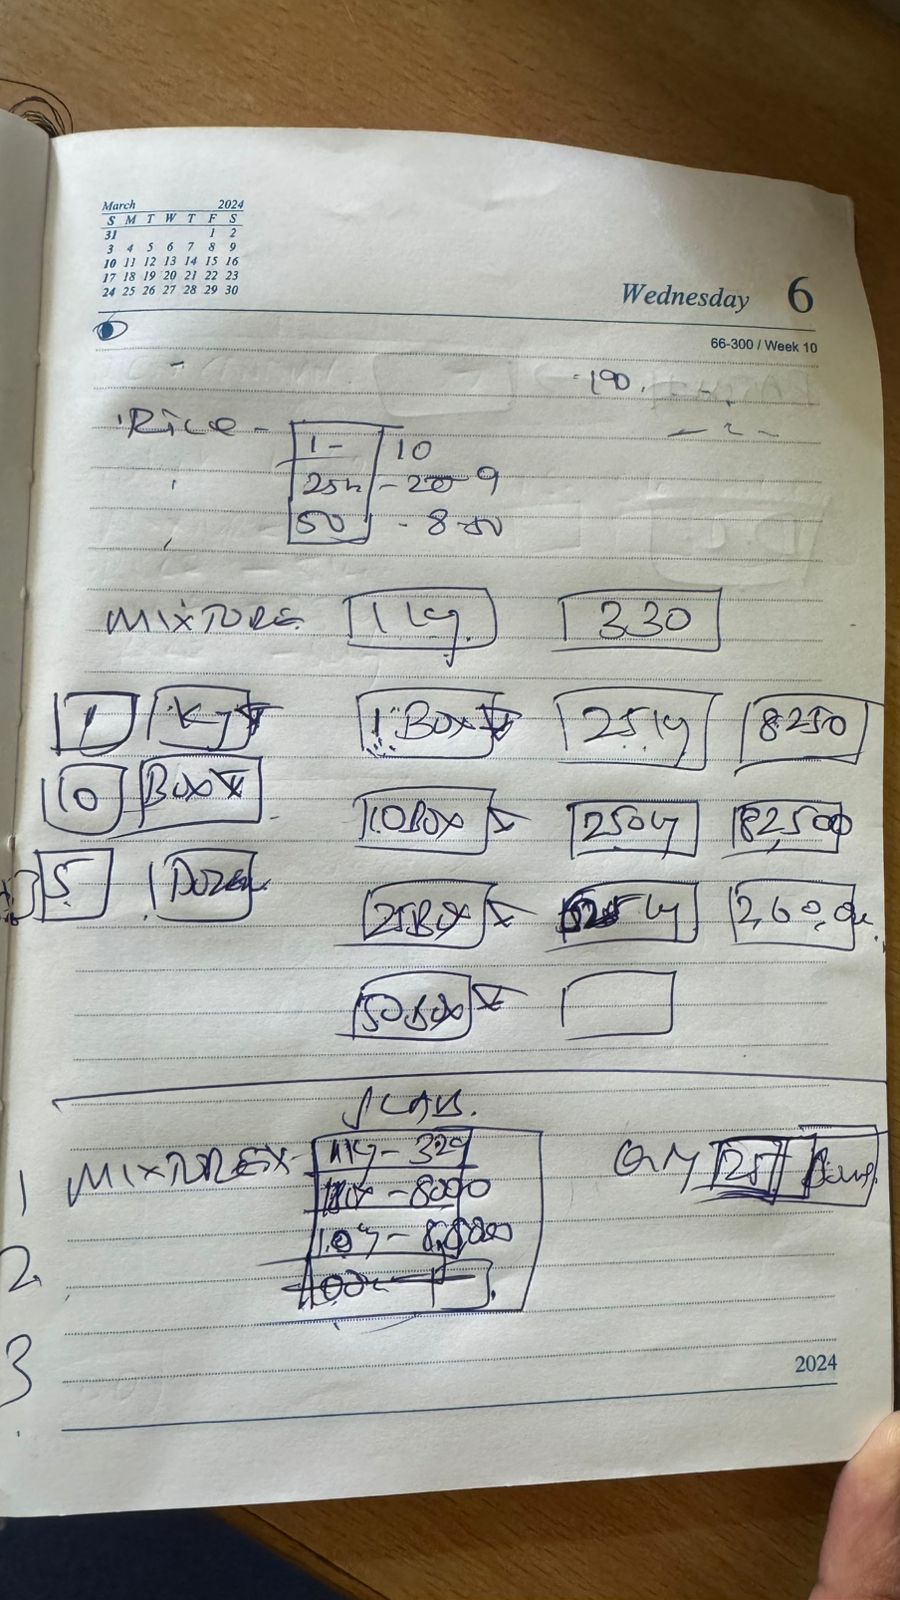 March 2024
S M T W T F S
31 1 2
3 4 5 6 7 8 9
10 11 12 13 14 15 16
17 18 19 20 21 22 23
24 25 26 27 28 29 30
Wednesday 6
66-300 / Week 10
190.
Rice - 1 - 10
25k - 20 9
50 - 8-50
MIXTURE 1 Kg. 330
1 Kg 1 Box 25 kg 8250
10 Box 10 Box 250 kg 82500
5 1 Dozen 25 Box
50 Box
SLAB.
1 MIXTURE 1 Kg - 329 Qty 25
- 8000
2
3
2024